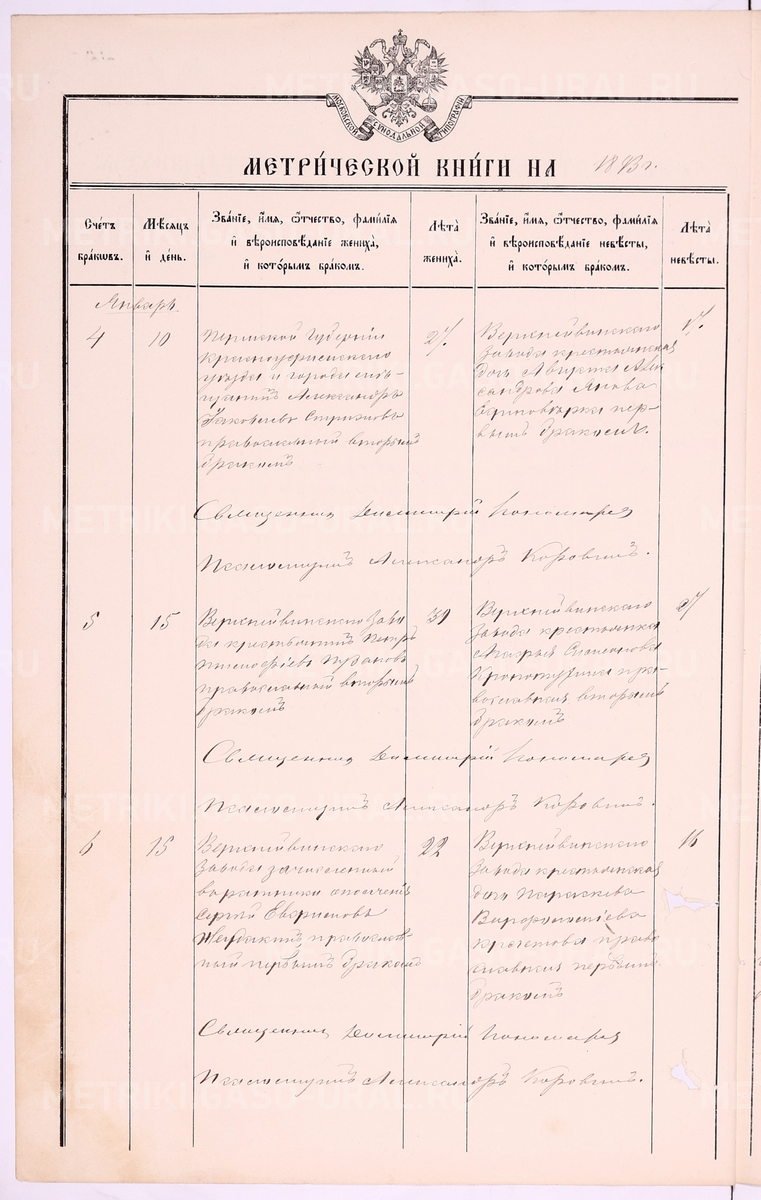 МОСКОВСКОЙ СѴНОДАЛЬНОЙ ТИПОГРАФІИ
МЕТРИ́ЧЕСКОЙ КНИ́ГИ НА 1893 г.
Сче́тъ бра́кѡвъ.
Мѣ́сяцъ и҆ де́нь.
Зва́нїе, и҆́мя, ѻ҆́тчество, фами́лїя и҆ вѣроисповѣ́данїе жениха̀, и҆ кото́рымъ бра́комъ.
Лѣ́та жениха̀.
Зва́нїе, и҆́мя, ѻ҆́тчество, фами́лїя и҆ вѣроисповѣ́данїе невѣ́сты, и҆ кото́рымъ бра́комъ.
Лѣ́та невѣ́сты.
Январь
4
10
Пермской Губерніи
Красноуфимскаго
уѣзда и города
Александръ
Яковлевъ
православный вторымъ
бракомъ
27
Верхнейвинскаго
завода крестьянская
дочь Августа Алек
сандрова
единовѣрка пер-
вымъ бракомъ.
17
Священникъ Димитрій Пономаревъ
Псаломщикъ Александръ Коровинъ.
5
15
Верхнейвинскаго заво
да крестьянинъ Петръ
православный вторымъ
бракомъ
39
Верхнейвинскаго
завода крестьянка
Марья Симеонова
пра-
вославная вторымъ
бракомъ
27
Священникъ Димитрій Пономаревъ
Псаломщикъ Александръ Коровинъ.
6
15
Верхнейвинскаго
завода зачисленный
въ ратники ополченія
Сергій
православ-
ный первымъ бракомъ
22
Верхнейвинскаго
завода крестьянская
дочь Параскева
Варфоломеева
право
славная первымъ
бракомъ
16
Священникъ Димитрій Пономаревъ
Псаломщикъ Александръ Коровинъ.
METRIKI.GASO-URAL.RU